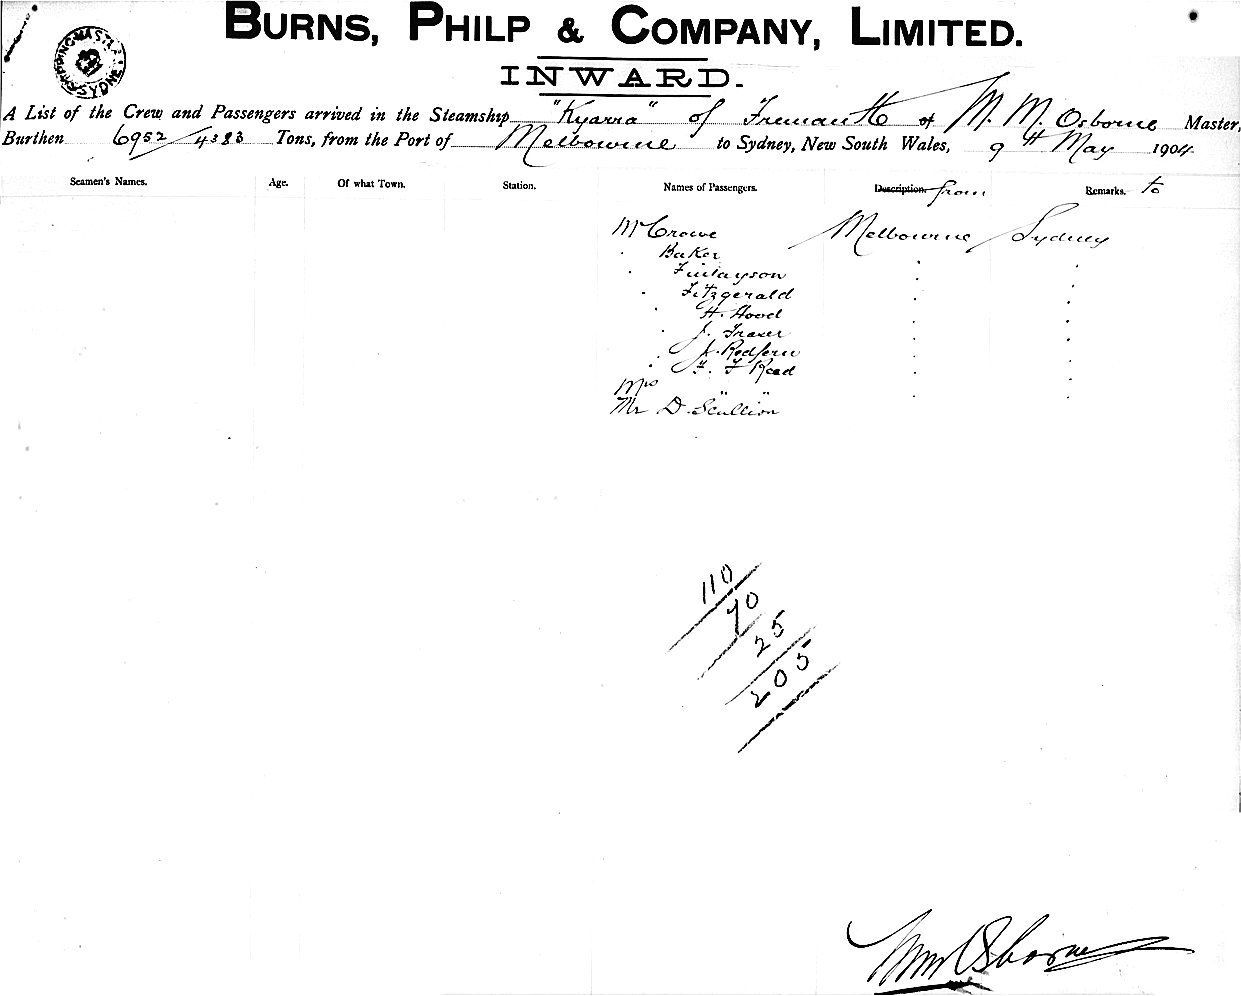 BURNS, PHILP & COMPANY, LIMITED.
SHIPPING MASTER SYDNEY
INWARD.
A List of the Crew and Passengers arrived in the Steamship "Kyarra" of Fremantle of M. M. Osborne Master,
Burthen 6952/4383 Tons, from the Port of Melbourne to Sydney, New South Wales, 9th May 1904.
Seamen's Names. Age. Of what Town. Station. Names of Passengers. Description. from Remarks. to
Mr Crowe Melbourne Sydney
Baker
Finlayson
Fitzgerald
H. Hood
J. Fraser
J. Redfern
F. F Read
Mrs " "
Mr D. Scullion
110
70
25
205
Wm Osborne